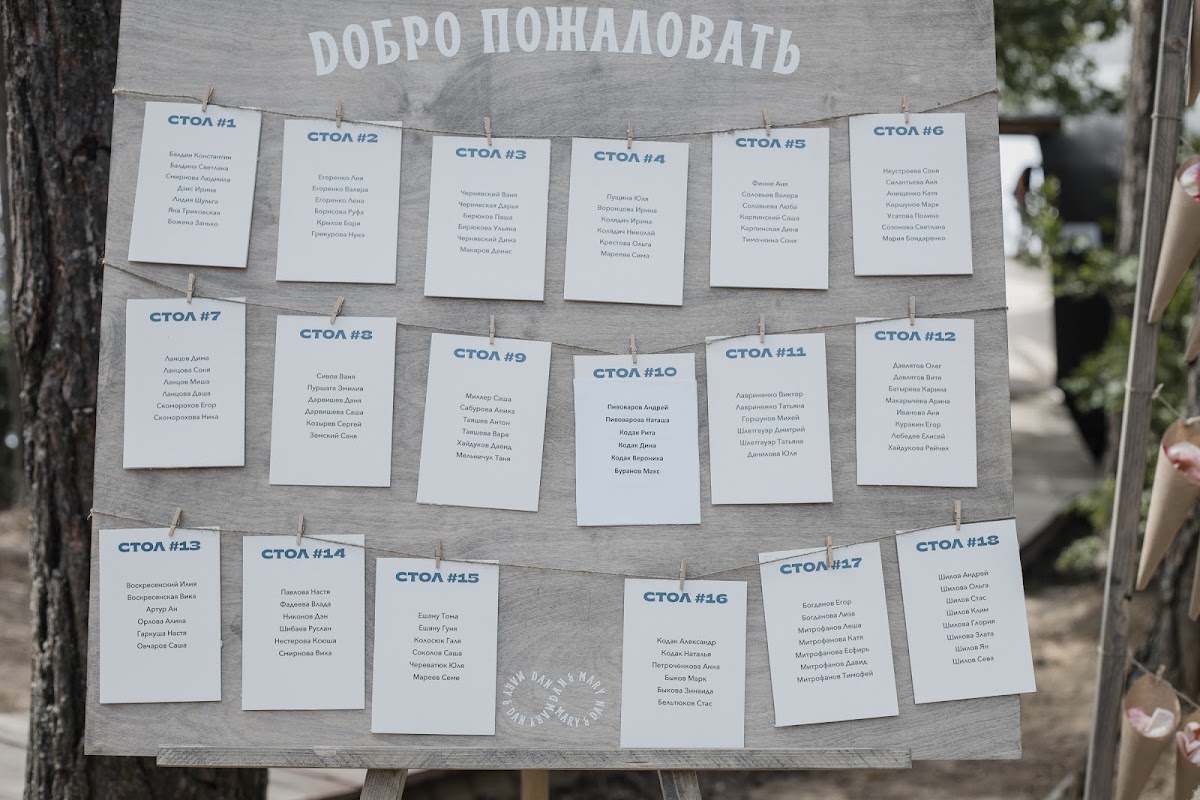 ДОБРО ПОЖАЛОВАТЬ
СТОЛ #1
Балдин Константин
Балдина Светлана
Смирнова Людмила
Дзис Ирина
Лидия Шульга
Яна Триковская
Божена Занько
СТОЛ #2
Егоренко Лия
Егоренко Валера
Егоренко Лена
Борисова Руфа
Крылов Боря
Грикурова Нуну
СТОЛ #3
Чернявский Ваня
Чернявская Дарья
Бирюков Паша
Бирюкова Ульяна
Чернявский Дима
Макаров Денис
СТОЛ #4
Пущина Юля
Воронцова Ирина
Колядич Ирина
Колядич Николай
Крестова Ольга
Мареева Сима
СТОЛ #5
Финке Аня
Соловьев Валера
Соловьева Люба
Карпинский Саша
Карпинская Дина
Тимочкина Соня
СТОЛ #6
Неустроева Соня
Силантьева Аня
Анищенко Катя
Коршунов Марк
Усатова Полина
Созонова Светлана
Мария Бондаренко
СТОЛ #7
Ланцов Дима
Ланцова Соня
Ланцов Миша
Ланцова Даша
Скоморохов Егор
Скоморохова Нина
СТОЛ #8
Сивов Ваня
Пуршага Эмилия
Дарвишев Даня
Дарвишева Саша
Козырев Сергей
Земский Саня
СТОЛ #9
Миллер Саша
Сабурова Аника
Таяшев Антон
Таяшева Варя
Хайдуков Давид
Мельничук Таня
СТОЛ #10
Пивоваров Андрей
Пивоварова Наташа
Кодак Рита
Кодак Дина
Кодак Вероника
Буранов Макс
СТОЛ #11
Лавриненко Виктор
Лавриненко Татьяна
Горшунов Михей
Шлетгауэр Дмитрий
Шлетгауэр Татьяна
Данилова Юля
СТОЛ #12
Давлятов Олег
Давлятов Витя
Батырева Карина
Макарычева Арина
Иванова Аня
Куракин Егор
Лебедев Елисей
Хайдукова Рейчел
СТОЛ #13
Воскресенский Илия
Воскресенская Вика
Артур Ан
Орлова Алина
Гаркуша Настя
Овчаров Саша
СТОЛ #14
Павлова Настя
Фадеева Влада
Никонов Дэн
Шибаев Руслан
Нестерова Ксюша
Смирнова Вика
СТОЛ #15
Ешану Тома
Ешану Гуня
Колосюк Галя
Соколов Саша
Череватюк Юля
Мареев Семе
СТОЛ #16
Кодак Александр
Кодак Наталья
Петроченкова Анна
Быков Марк
Быкова Зинаида
Бельтюков Стас
СТОЛ #17
Богданов Егор
Богданова Лиза
Митрофанов Леша
Митрофанова Катя
Митрофанова Есфирь
Митрофанов Давид
Митрофанов Тимофей
СТОЛ #18
Шилов Андрей
Шилова Ольга
Шилов Стас
Шилов Клим
Шилова Глория
Шилова Злата
Шилов Ян
Шилов Сева
MARY & DAN MARY & DAN
DAN & MARY DAN & MARY